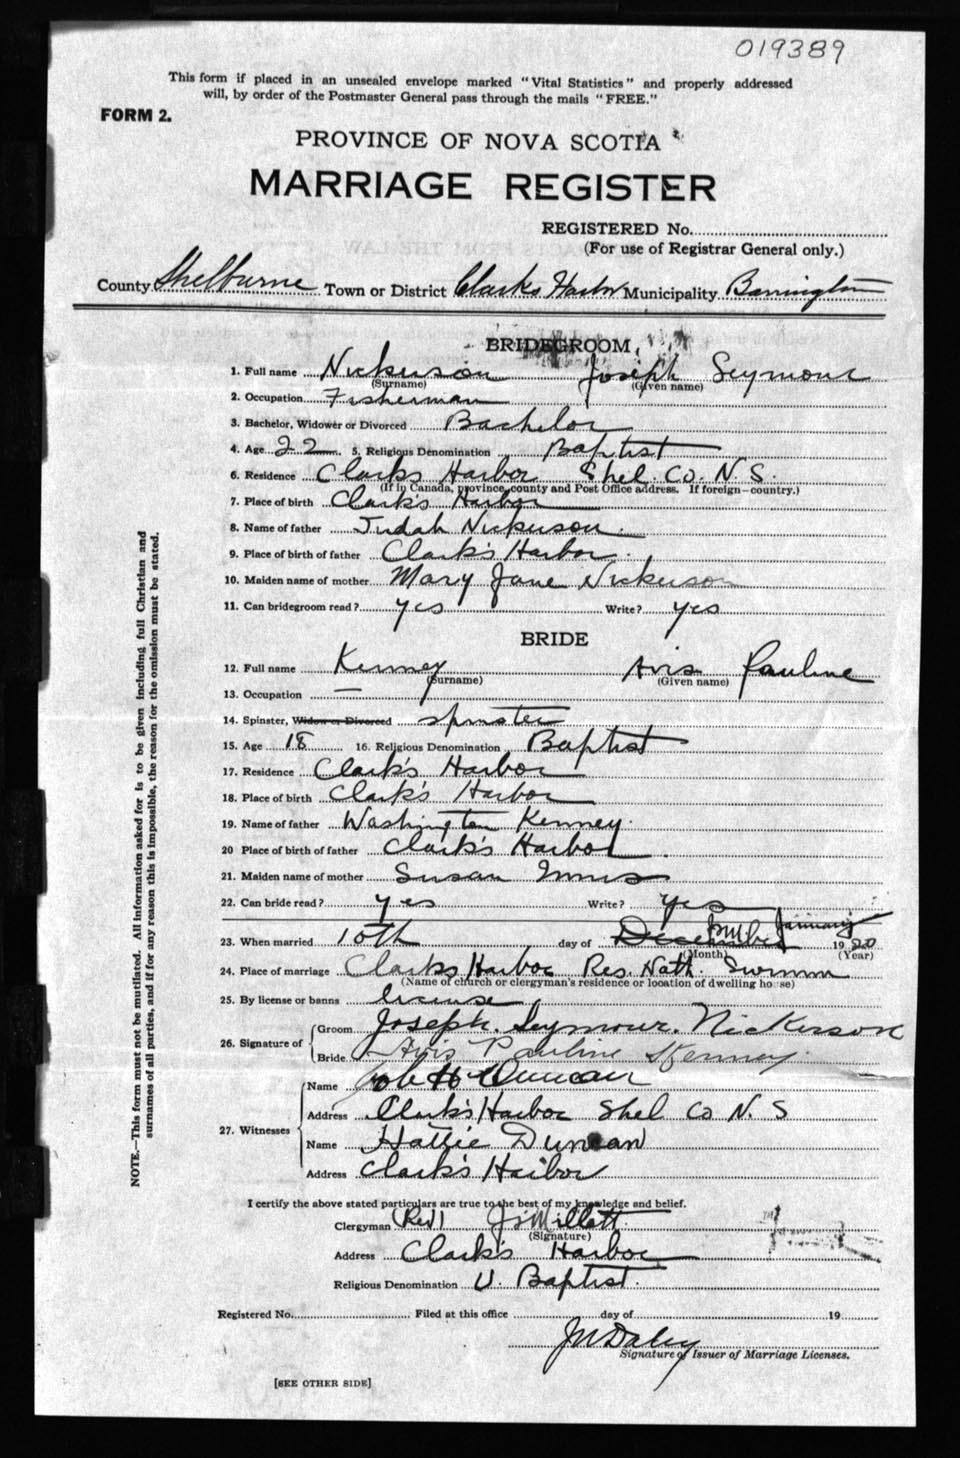 019389
This form if placed in an unsealed envelope marked "Vital Statistics" and properly addressed
will, by order of the Postmaster General pass through the mails "FREE."
FORM 2.
PROVINCE OF NOVA SCOTIA
MARRIAGE REGISTER
REGISTERED No.
(For use of Registrar General only.)
County Shelburne Town or District Clarks Harbor Municipality Barrington
BRIDEGROOM
1. Full name Nickerson Joseph Seymour
(Surname) (Given name)
2. Occupation Fisherman
3. Bachelor, Widower or Divorced Bachelor
4. Age 22 5. Religious Denomination Baptist
6. Residence Clarks Harbor Shel. Co. N. S.
(If in Canada, province, county and Post Office address. If foreign—country.)
7. Place of birth Clark's Harbor
8. Name of father Judah Nickerson
9. Place of birth of father Clark's Harbor.
10. Maiden name of mother Mary Jane Nickerson
11. Can bridegroom read? yes Write? yes
BRIDE
12. Full name Kenney Avis Pauline
(Surname) (Given name)
13. Occupation —
14. Spinster, Widow or Divorced spinster
15. Age 18 16. Religious Denomination Baptist
17. Residence Clark's Harbor
18. Place of birth Clark's Harbor
19. Name of father Washington Kenney.
20 Place of birth of father Clark's Harbor.
21. Maiden name of mother Susan
22. Can bride read? yes Write? yes
January
23. When married 10th day of December 1920
(Month) (Year)
24. Place of marriage Clarks Harbor Res. Nath. Swimm
(Name of church or clergyman's residence or location of dwelling house)
25. By license or banns license
26. Signature of Groom Joseph. Seymour. Nickerson
Bride Avis Pauline Kenney.
27. Witnesses Name Duncan
Address Clark's Harbor Shel Co N. S
Name Hattie Duncan
Address Clark's Harbor
I certify the above stated particulars are true to the best of my knowledge and belief.
Clergyman (Rev) Millett
(Signature)
Address Clark's Harbor
Religious Denomination U. Baptist.
Registered No. Filed at this office day of 19
Daley
Signature of Issuer of Marriage Licenses.
[SEE OTHER SIDE]
NOTE.—This form must not be mutilated. All information asked for is to be given including full Christian and
surnames of all parties, and if for any reason this is impossible, the reason for the omission must be stated.